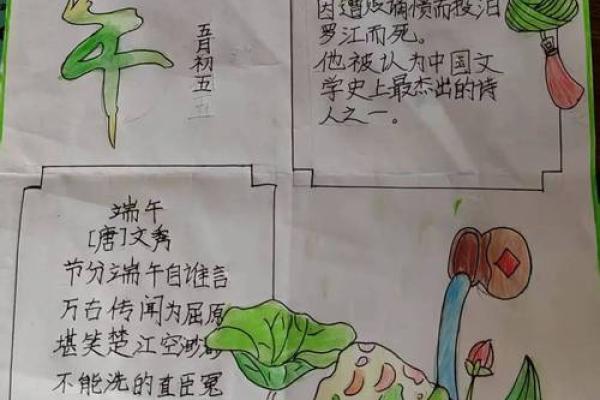 午
五月初五
五
因遭毁愤而投汨
罗江而死。
他被认为中国文
学史上最杰出的诗
人之一。
端午
[唐]文秀
节分端午自谁言
万古传闻为屈原
堪笑楚江空渺
不能洗的直臣冤